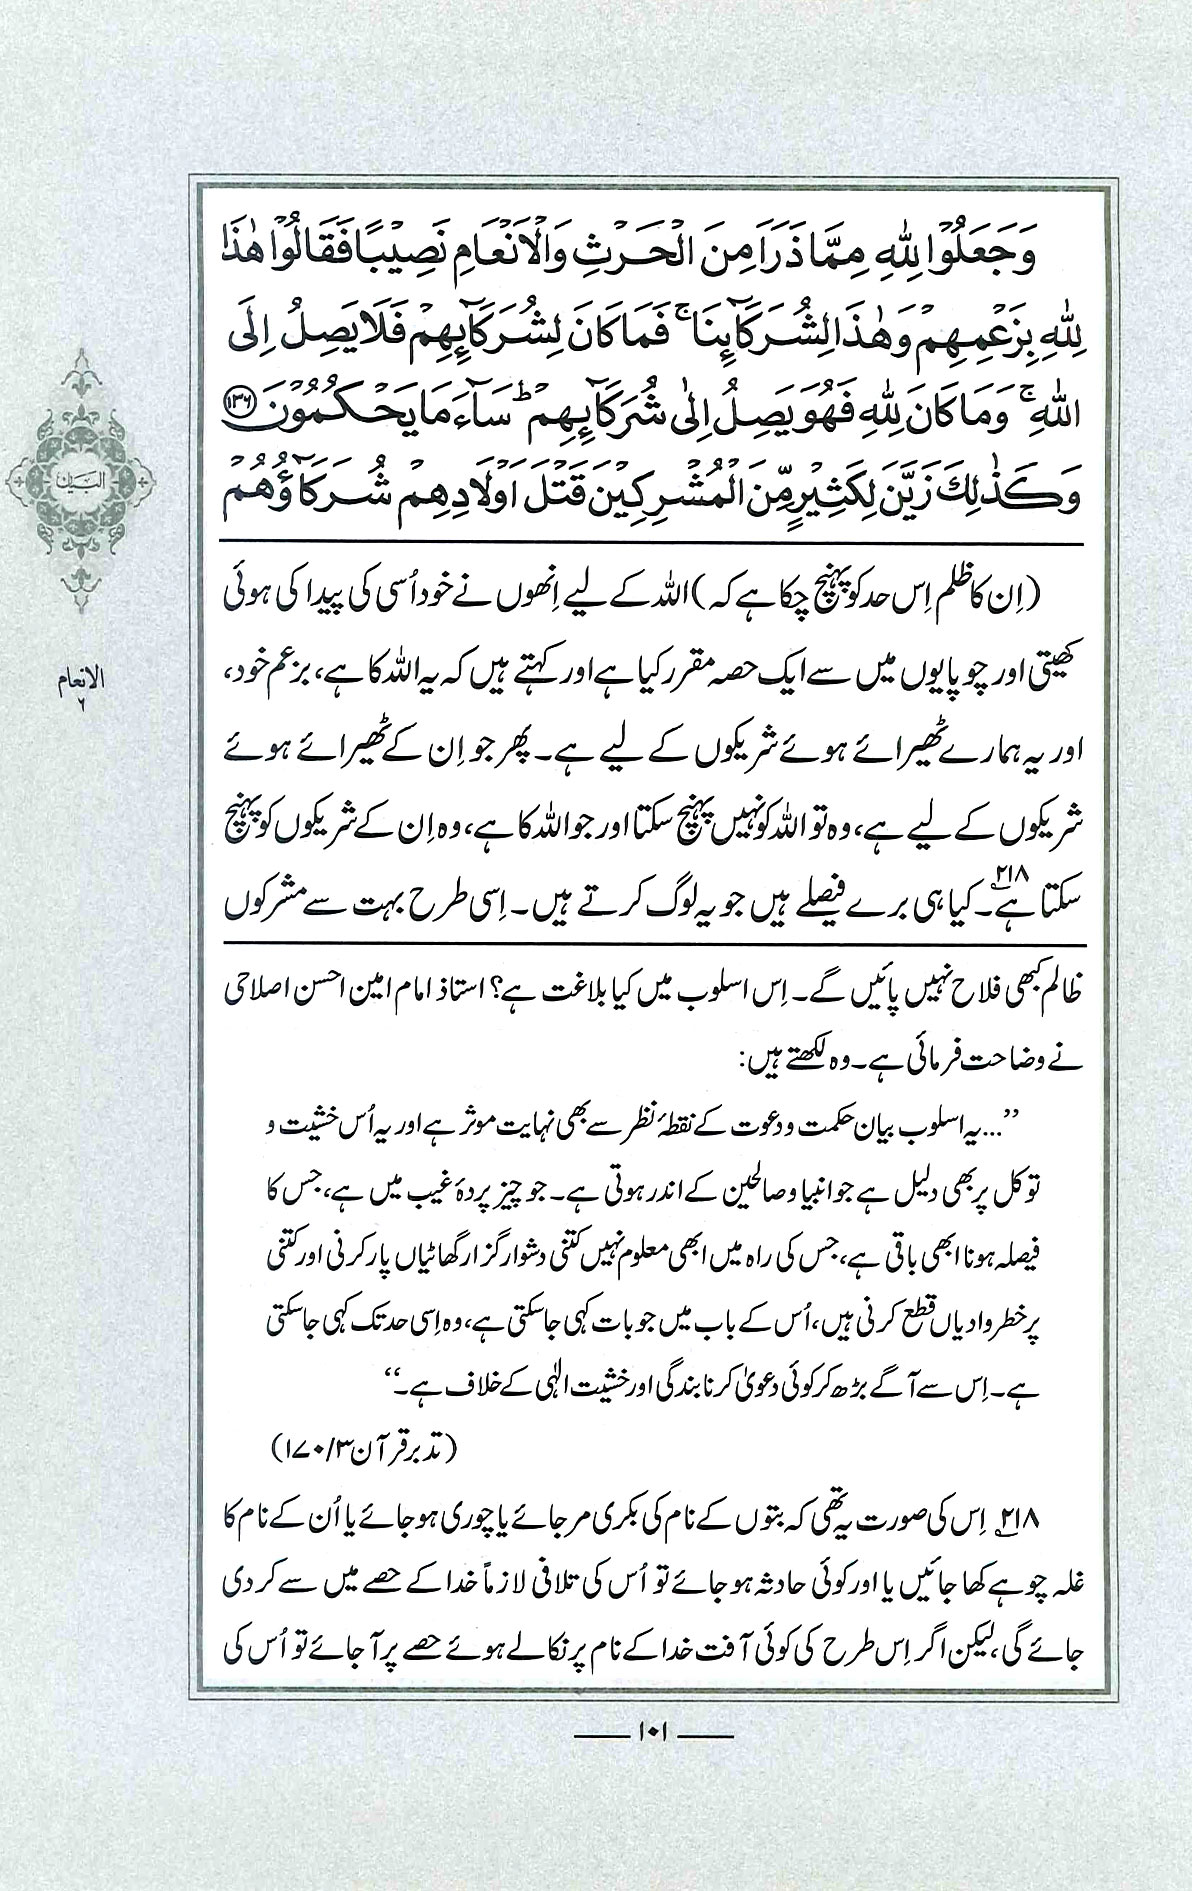 وَجَعَلُوْا لِلّٰهِ مِمَّا ذَرَاَ مِنَ الْحَرْثِ وَالْاَنْعَامِ نَصِيْبًا فَقَالُوْا هٰذَا
لِلّٰهِ بِزَعْمِهِمْ وَهٰذَا لِشُرَكَآئِنَا ۚ فَمَا كَانَ لِشُرَكَآئِهِمْ فَلَا يَصِلُ اِلَى
اللّٰهِ ۚ وَمَا كَانَ لِلّٰهِ فَهُوَ يَصِلُ اِلٰى شُرَكَآئِهِمْ ؕ سَآءَ مَا يَحْكُمُوْنَ ﴿۱۳۶﴾
وَكَذٰلِكَ زَيَّنَ لِكَثِيْرٍ مِّنَ الْمُشْرِكِيْنَ قَتْلَ اَوْلَادِهِمْ شُرَكَآؤُهُمْ
(اِن کا ظلم اِس حد کو پہنچ چکا ہے کہ) اللہ کے لیے اِنھوں نے خود اُسی کی پیدا کی ہوئی
کھیتی اور چوپایوں میں سے ایک حصہ مقرر کیا ہے اور کہتے ہیں کہ یہ اللہ کا ہے، بزعم خود،
اور یہ ہمارے ٹھیرائے ہوئے شریکوں کے لیے ہے۔ پھر جو اِن کے ٹھیرائے ہوئے
شریکوں کے لیے ہے، وہ تو اللہ کو نہیں پہنچ سکتا اور جو اللہ کا ہے، وہ اِن کے شریکوں کو پہنچ
سکتا ہے۔۲۱۸ کیا ہی برے فیصلے ہیں جو یہ لوگ کرتے ہیں۔ اِسی طرح بہت سے مشرکوں
ظالم کبھی فلاح نہیں پائیں گے۔ اِس اسلوب میں کیا بلاغت ہے؟ استاذ امام امین احسن اصلاحی
نے وضاحت فرمائی ہے۔ وہ لکھتے ہیں:
”...یہ اسلوب بیان حکمت ودعوت کے نقطۂ نظر سے بھی نہایت موثر ہے اور یہ اُس خشیت و
توکل پر بھی دلیل ہے جو انبیا و صالحین کے اندر ہوتی ہے۔ جو چیز پردۂ غیب میں ہے، جس کا
فیصلہ ہونا ابھی باقی ہے، جس کی راہ میں ابھی معلوم نہیں کتنی دشوار گزار گھاٹیاں پار کرنی اور کتنی
پرخطر وادیاں قطع کرنی ہیں، اُس کے باب میں جو بات کہی جاسکتی ہے، وہ اِسی حد تک کہی جاسکتی
ہے۔ اِس سے آگے بڑھ کر کوئی دعویٰ کرنا بندگی اور خشیت الٰہی کے خلاف ہے۔“
(تدبر قرآن ۳/ ۱۷۰)
۲۱۸ اِس کی صورت یہ تھی کہ بتوں کے نام کی بکری مر جائے یا چوری ہوجائے یا اُن کے نام کا
غلہ چوہے کھا جائیں یا اور کوئی حادثہ ہوجائے تو اُس کی تلافی لازماً خدا کے حصے میں سے کر دی
جائے گی، لیکن اگر اِس طرح کی کوئی آفت خدا کے نام پر نکالے ہوئے حصے پر آجائے تو اُس کی
البیان
الانعام
۶
۱۰۱